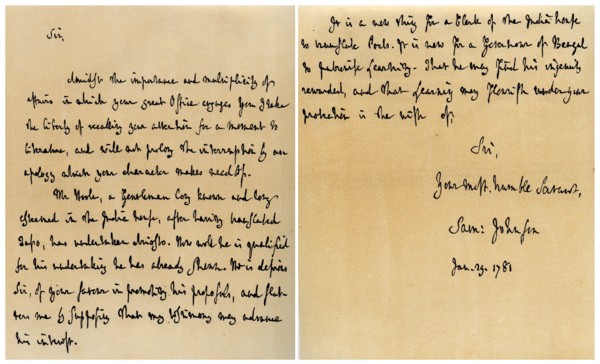 Sir,
Amidst the importance and multiplicity of
affairs in which your great Office engages you I take
the liberty of recalling your attention for a moment to
literature, and will not prolong the interruption by an
apology which your character makes needless.
Mr Hoole, a Gentleman long known and long
esteemed in the India house, after having translated
Tasso, has undertaken Ariosto. How well he is qualified
for his undertaking he has already shewn. He is desirous
Sir, of your favour in promoting his proposals, and flat-
ters me by supposing that my testimony may advance
his interest.
It is a new thing for a Clerk of the India house
to translate Poets. It is new for a Governour of Bengal
to patronise Learning. That he may find his ingenuity
rewarded, and that Learning may flourish under your
protection is the wish of,
Sir,
Your most humble Servant,
Sam: Johnson
Jan. 29. 1781